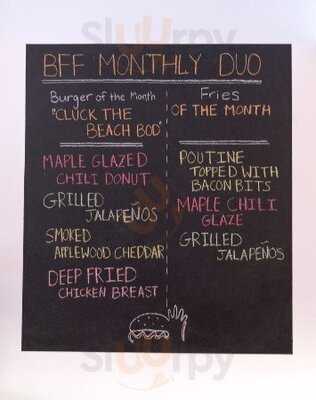 BFF MONTHLY DUO
Burger of the Month
"CLUCK THE
BEACH BOD"
MAPLE GLAZED
CHILI DONUT
GRILLED
JALAPEÑOS
SMOKED
APPLEWOOD CHEDDAR
DEEP FRIED
CHICKEN BREAST
Fries
OF THE MONTH
POUTINE
TOPPED WITH
BACON BITS
MAPLE CHILI
GLAZE
GRILLED
JALAPEÑOS
sluurpy
sluurpy